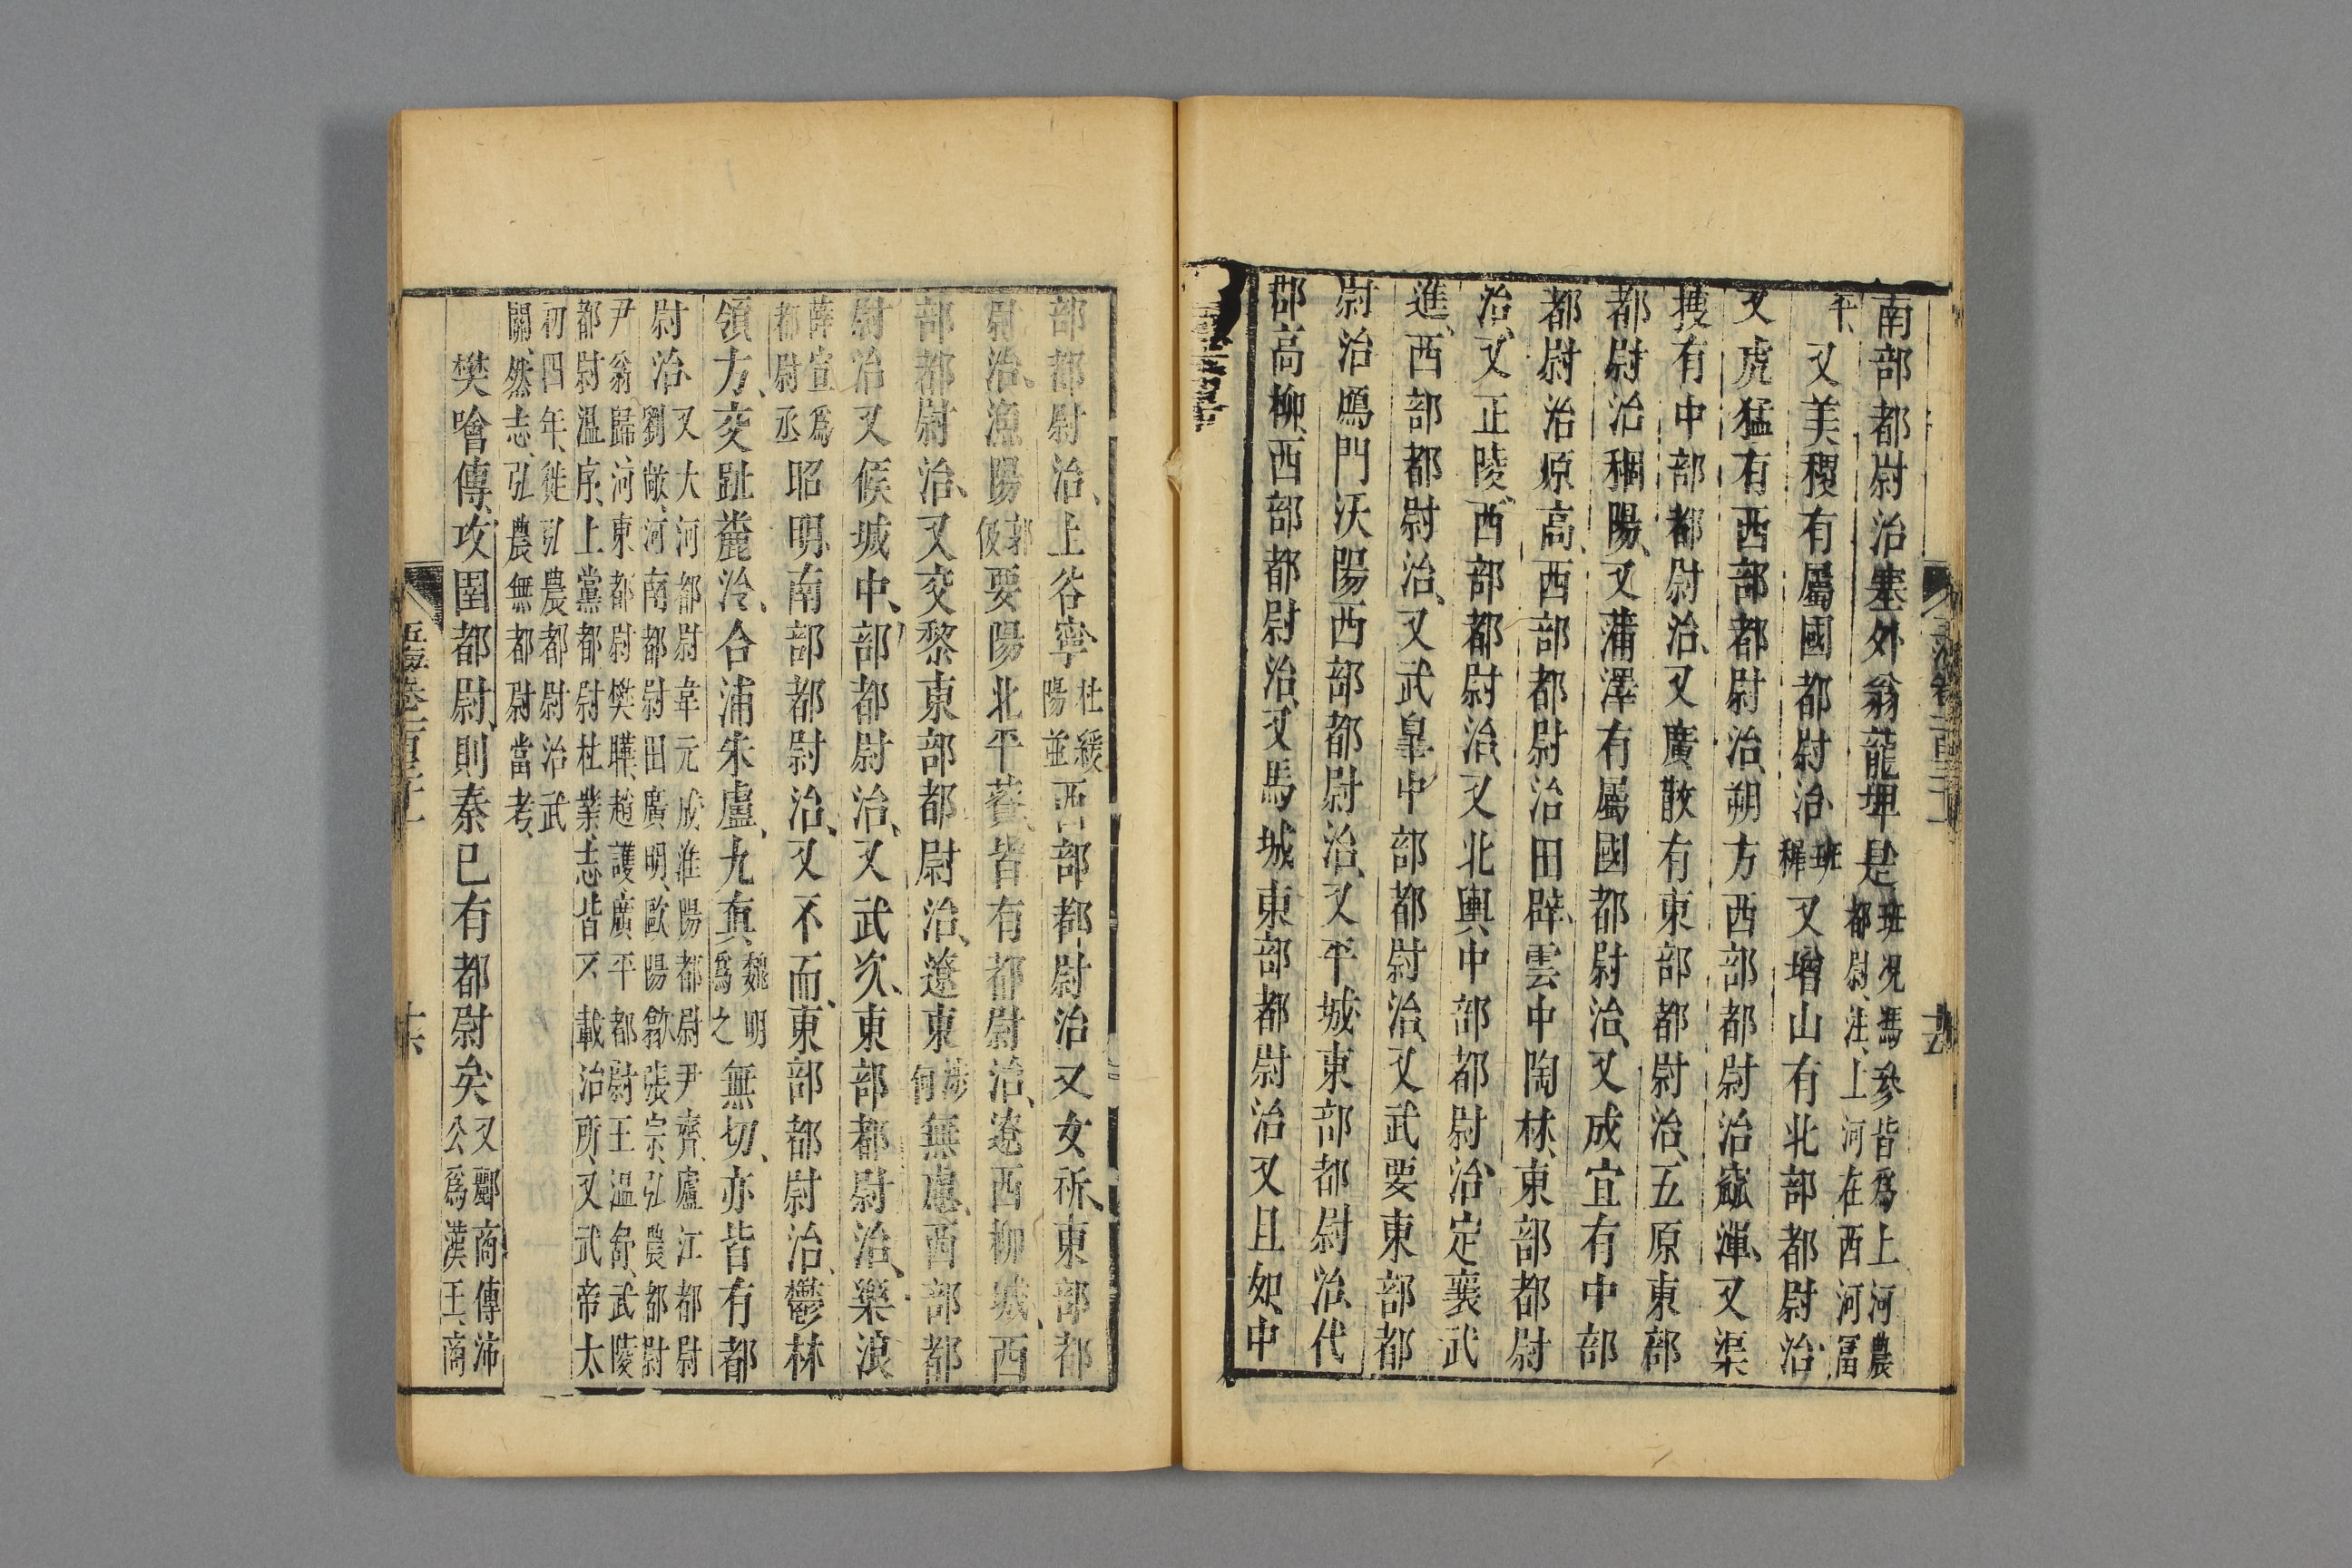 南部都尉治塞外翁龍埤是班况馮參皆爲上河農
都尉注上河在西河富
平又美稷有屬國都尉治班穉又增山有北部都尉治
又虎猛有西部都尉治朔方西部都尉治窳渾又渠
搜有中部都尉治又廣牧有東部都尉治五原東部
都尉治稒陽又蒲澤有屬國都尉治又成宜有中部
都尉治原高西部都尉治田辟雲中陶林東部都尉
治又正陵西部都尉治又北輿中部都尉治定襄武
進西部都尉治又武臯中部都尉治又武要東部都
尉治鴈門沃陽西部都尉治又平城東部都尉治代
郡高柳西部都尉治又馬城東部都尉治又且如中
部都尉治上谷寧杜緩陽並西部都尉治又女祈東部都
尉治漁陽郭伋要陽北平薋皆有都尉治遼西柳城西
部都尉治又交黎東部都尉治遼東涉何無慮西部都
尉治又候城中部都尉治又武次東部都尉治樂浪
薛宣爲都尉丞昭明南部都尉治又不而東部都尉治鬱林
領方交趾麊泠合浦朱盧九真魏明爲之無切亦皆有都
尉治又大河都尉韋元成淮陽都尉尹齊廬江都尉
劉敞河南都尉田廣明歐陽歙張宗弘農都尉
尹翁歸河東都尉樊曄趙護廣平都尉王溫舒武陵
都尉溫序上黨都尉杜業志皆不載治所又武帝太
初四年徙弘農都尉治武
關然志弘農無都尉當考
樊噲傳攻圉都尉則秦已有都尉矣又酈商傳沛
公爲漢王商
卷二百三十一
十六